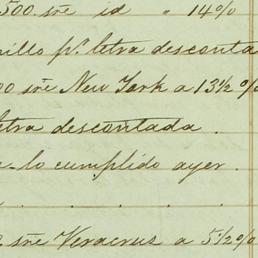 500 sre id " 14%
nillo pr. letra desconta
00 sre New York a 13½ %
etra descontada.
e-lo cumplido ayer.
. . . . .
sre Veracruz a 5½%